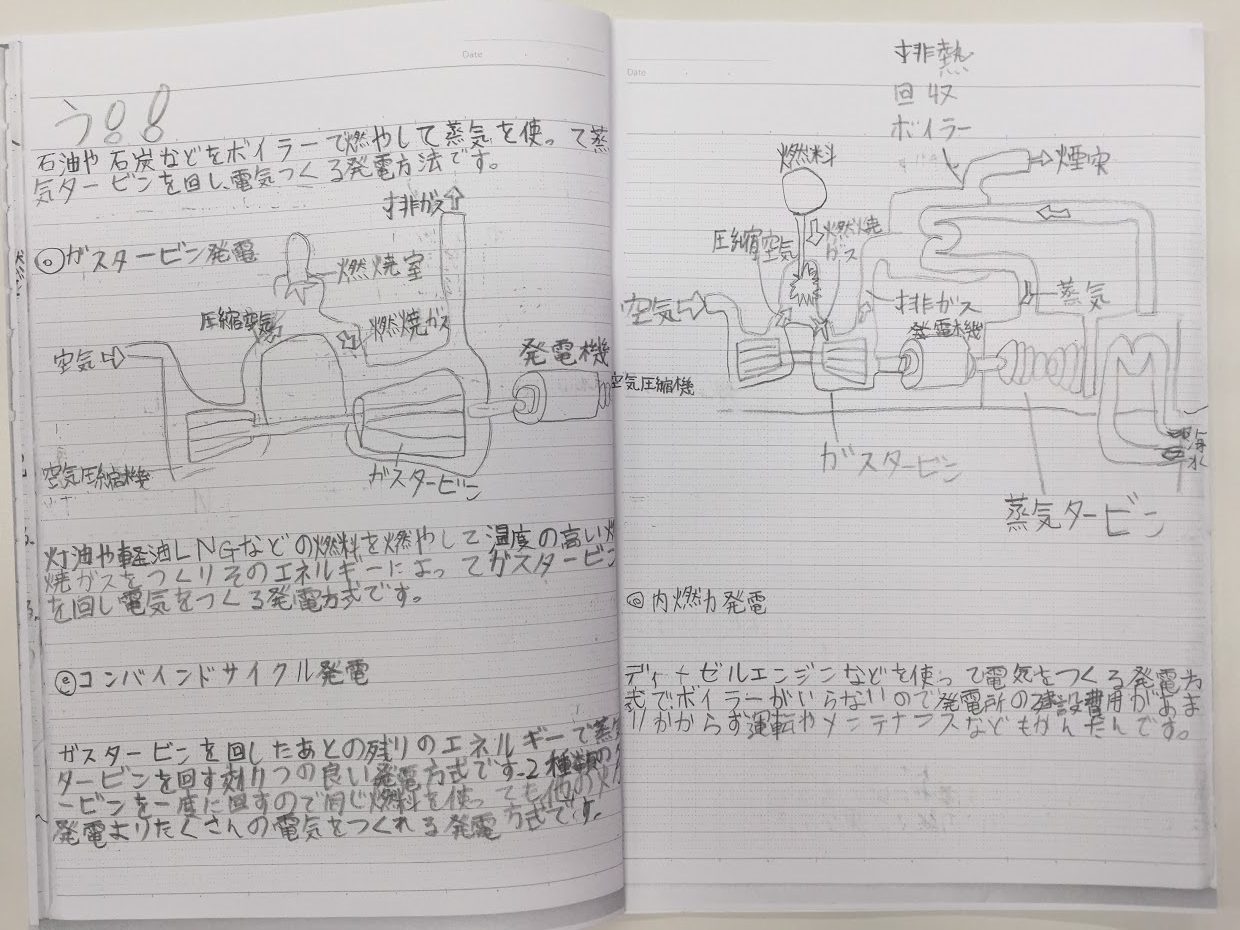 Date
う!!
石油や石炭などをボイラーで燃やして蒸気を使って蒸
気タービンを回し、電気つくる発電方法です。
排ガス
◎ガスタービン発電
燃焼室
圧縮空気
燃焼ガス
空気
発電機
空気圧縮機
ガスタービン
灯油や軽油LNGなどの燃料を燃やして温度の高い燃
焼ガスをつくりそのエネルギーによってガスタービン
を回し電気をつくる発電方式です。
◎コンバインドサイクル発電
ガスタービンを回したあとの残りのエネルギーで蒸気
タービンを回す効りつの良い発電方式です。2種類のタ
ービンを一度に回すので同じ燃料を使っても他の火力
発電よりたくさんの電気をつくれる発電方式です。
Date
排熱
回収
ボイラー
燃料
煙突
圧縮空気
燃焼
ガス
空気
排ガス
蒸気
発電機
空気圧縮機
ガスタービン
海水
蒸気タービン
◎内燃力発電
ディーゼルエンジンなどを使って電気をつくる発電方
式でボイラーがいらないので発電所の建設費用があま
りかからず運転やメンテナンスなどもかんたんです。